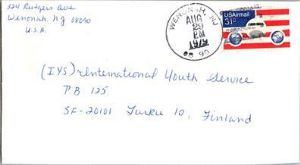 324 Rutgers Ave
Wenonah, NJ 08090
U.S.A.
WENONAH, NJ
AUG
29
PM
1979
08090
USAirmail
31c
(IYS) International Youth Service
PB 125
SF-20101 Turku 10, Finland